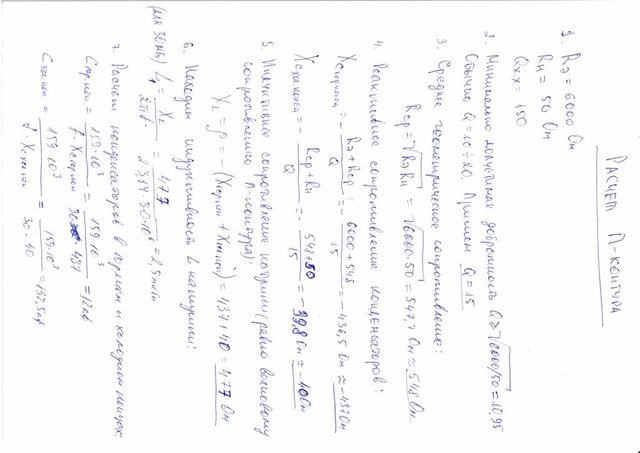 РАСЧЕТ П-КОНТУРА
1. Rэ = 6000 Ом
Rн = 50 Ом
Qхх = 150
2. Минимально допустимая добротность Q ≥ √6000/50 = 10,95
Обычно Q = 10 ÷ 20. Примем Q = 15
3. Среднее геометрическое сопротивление:
Rср = √Rэ Rн = √6000·50 = 547,7 Ом ≈ 548 Ом.
4. Реактивное сопротивление конденсаторов:
Xсгор.конец = - Rэ + Rср / Q = - 6000 + 548 / 15 = - 436,5 Ом ≈ - 437 Ом
Xсхол.конец = - Rср + Rн / Q = - 548 + 50 / 15 = - 39,8 Ом ≈ - 40 Ом
5. Индуктивное сопротивление катушки (равно волновому
сопротивлению П-контура):
XL = ρ = - (Xсгор.кон + Xсхол.кон) = 437 + 40 = 477 Ом
6. Находим индуктивность L катушки:
(для 30мГц) L4 = XL / 2πf = 477 / 2·3,14·30·10⁶ = 2,5 мкГн
7. Расчет конденсаторов в горячем и холодном концах:
Сгор.кон = 159·10³ / f·Xсгор.кон = 159·10³ / 30·437 = 12 пф
Схол.кон = 159·10³ / f·Xсхол.кон = 159·10³ / 30·40 = 132,5 пф